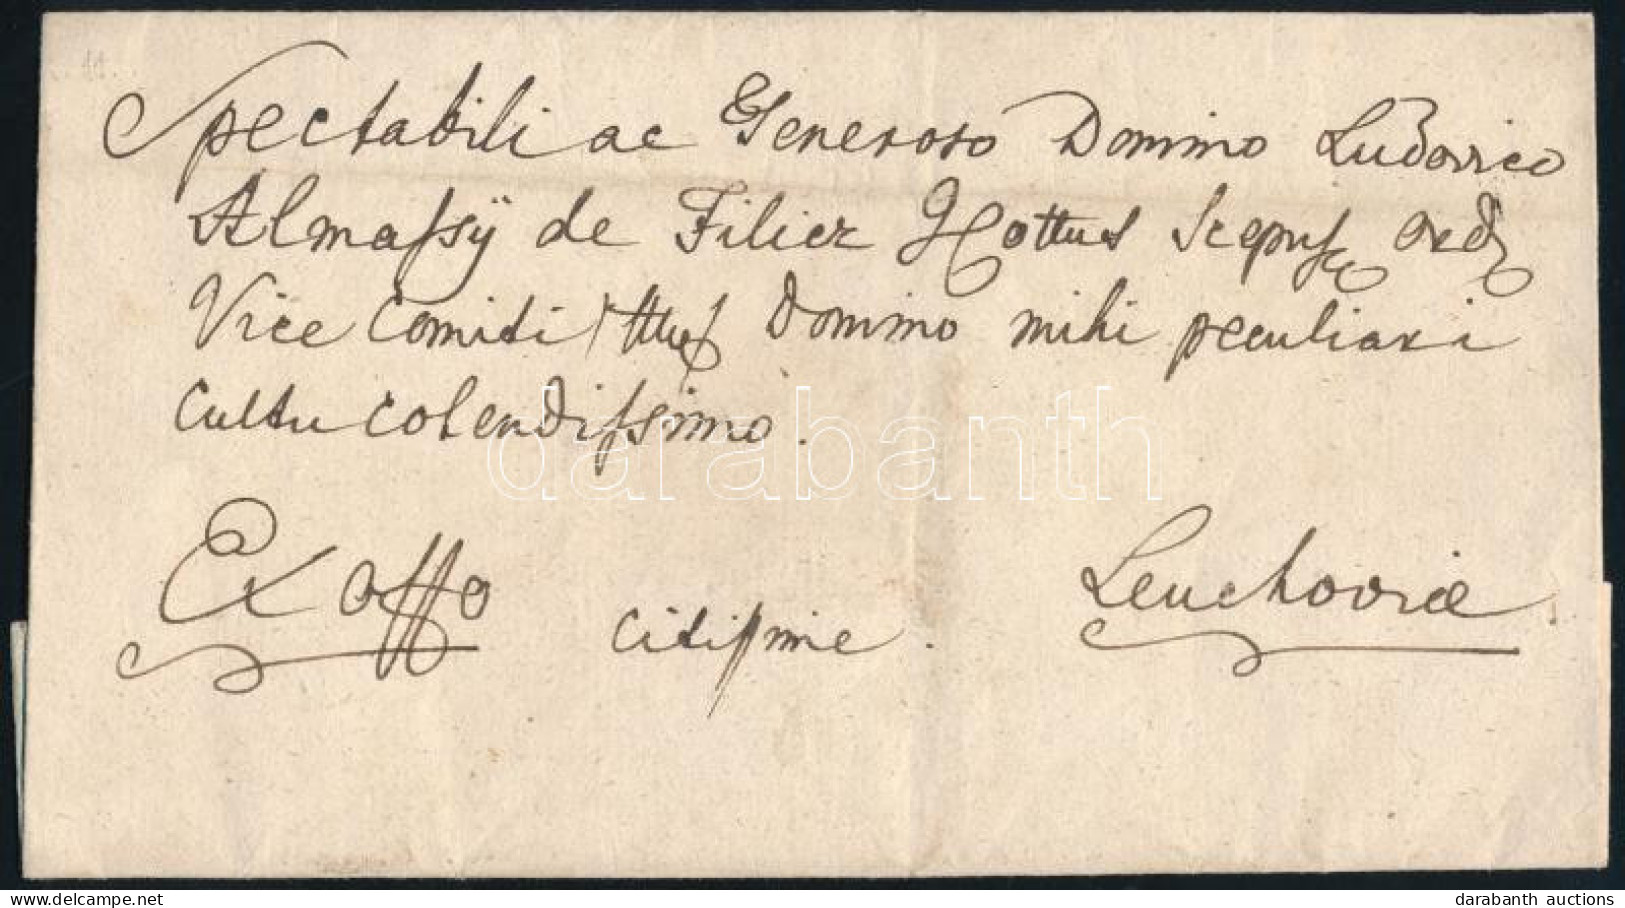 Spectabili ac Generoso Domino Ludovico
Almassÿ de Filier Hottus Scepus Ord
Vice Comiti Domino mihi peculiari
cultu colendissimo.
Ex offo citissime. Leuchoviæ
darabanth
darabanth auctions